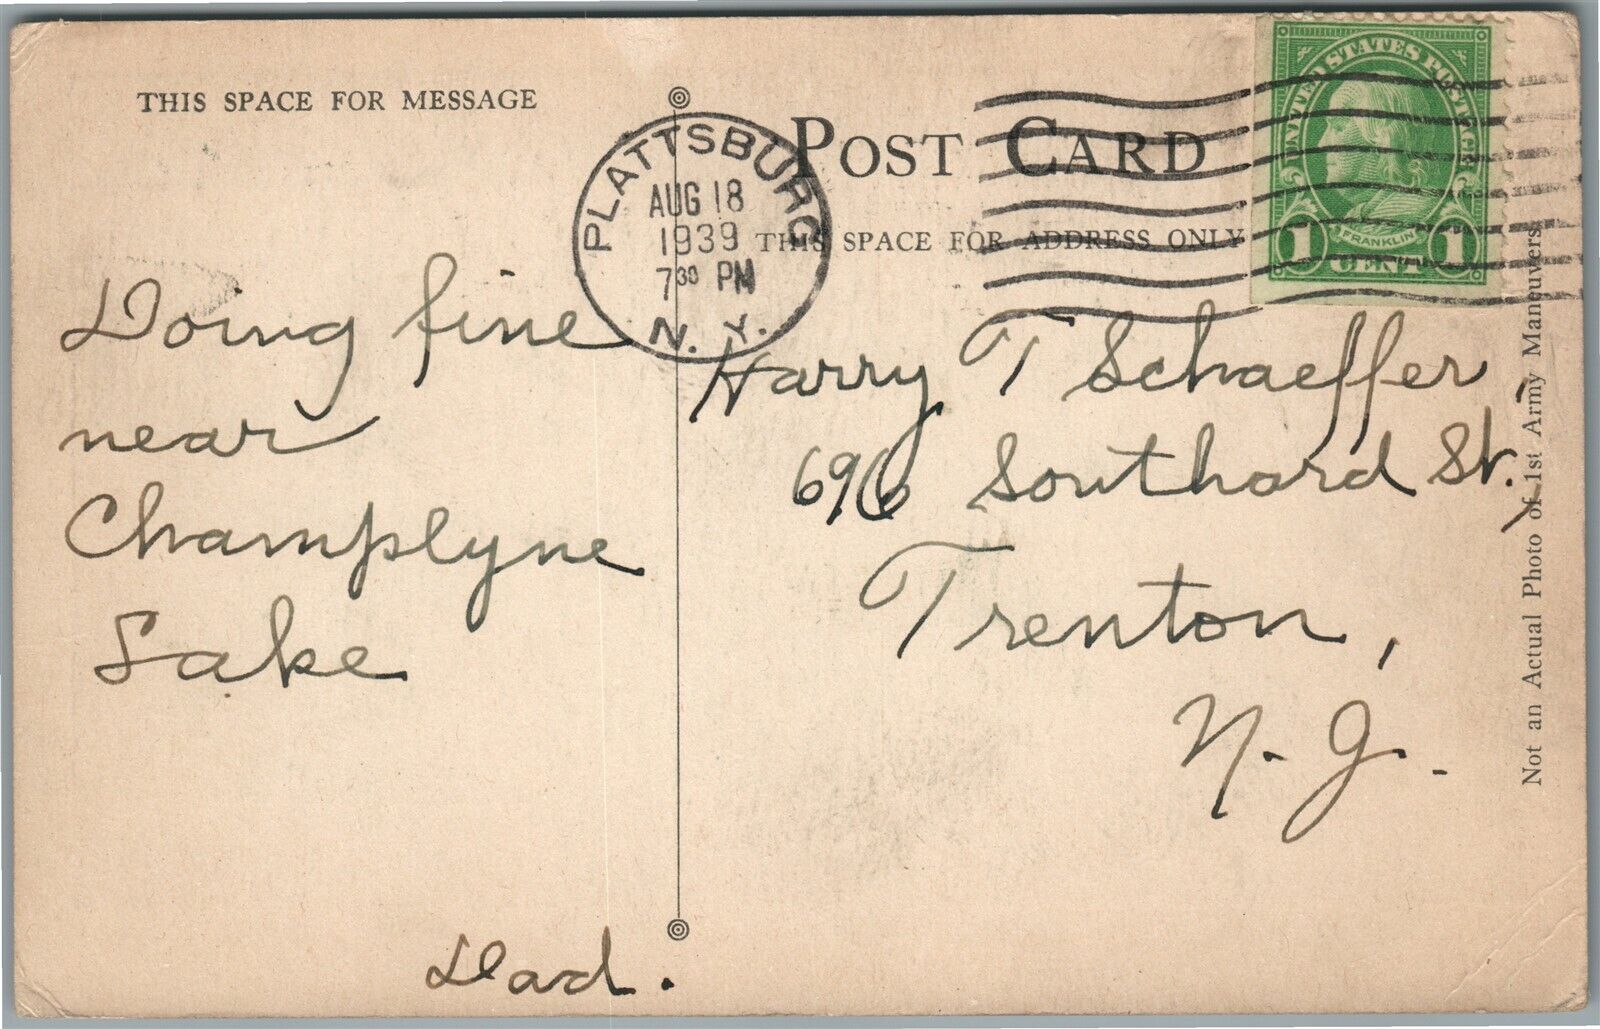 THIS SPACE FOR MESSAGE
Doing fine
near
Champlyne
Lake
Dad.
PLATTSBURG
AUG 18
1939
7 30 PM
N. Y.
POST CARD
THIS SPACE FOR ADDRESS ONLY
UNITED STATES POSTAGE
FRANKLIN
1 CENT 1
Harry T Schaeffer
696 Southard St.,
Trenton,
N. J.
Not an Actual Photo of 1st Army Maneuvers.